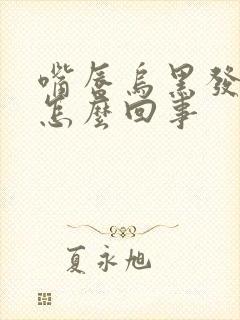 嘴唇烏黑發
怎麼回事
夏永旭